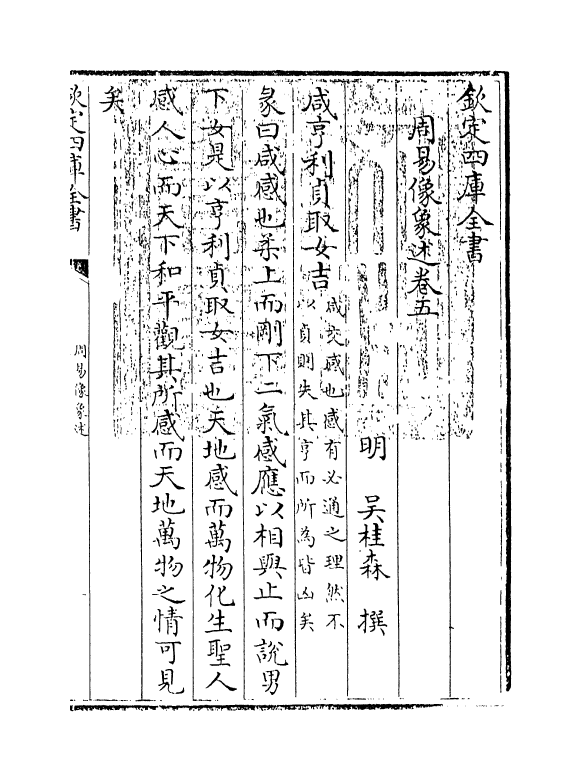 欽定四庫全書
周易像象述卷五
明 吳桂森 撰
咸亨利貞取女吉
咸交感也感有必通之理然不
以貞則失其亨而所為皆凶矣
彖曰咸感也柔上而剛下二氣感應以相與止而說男
下女是以亨利貞取女吉也天地感而萬物化生聖人
感人心而天下和平觀其所感而天地萬物之情可見
矣
欽定四庫全書
周易像象述